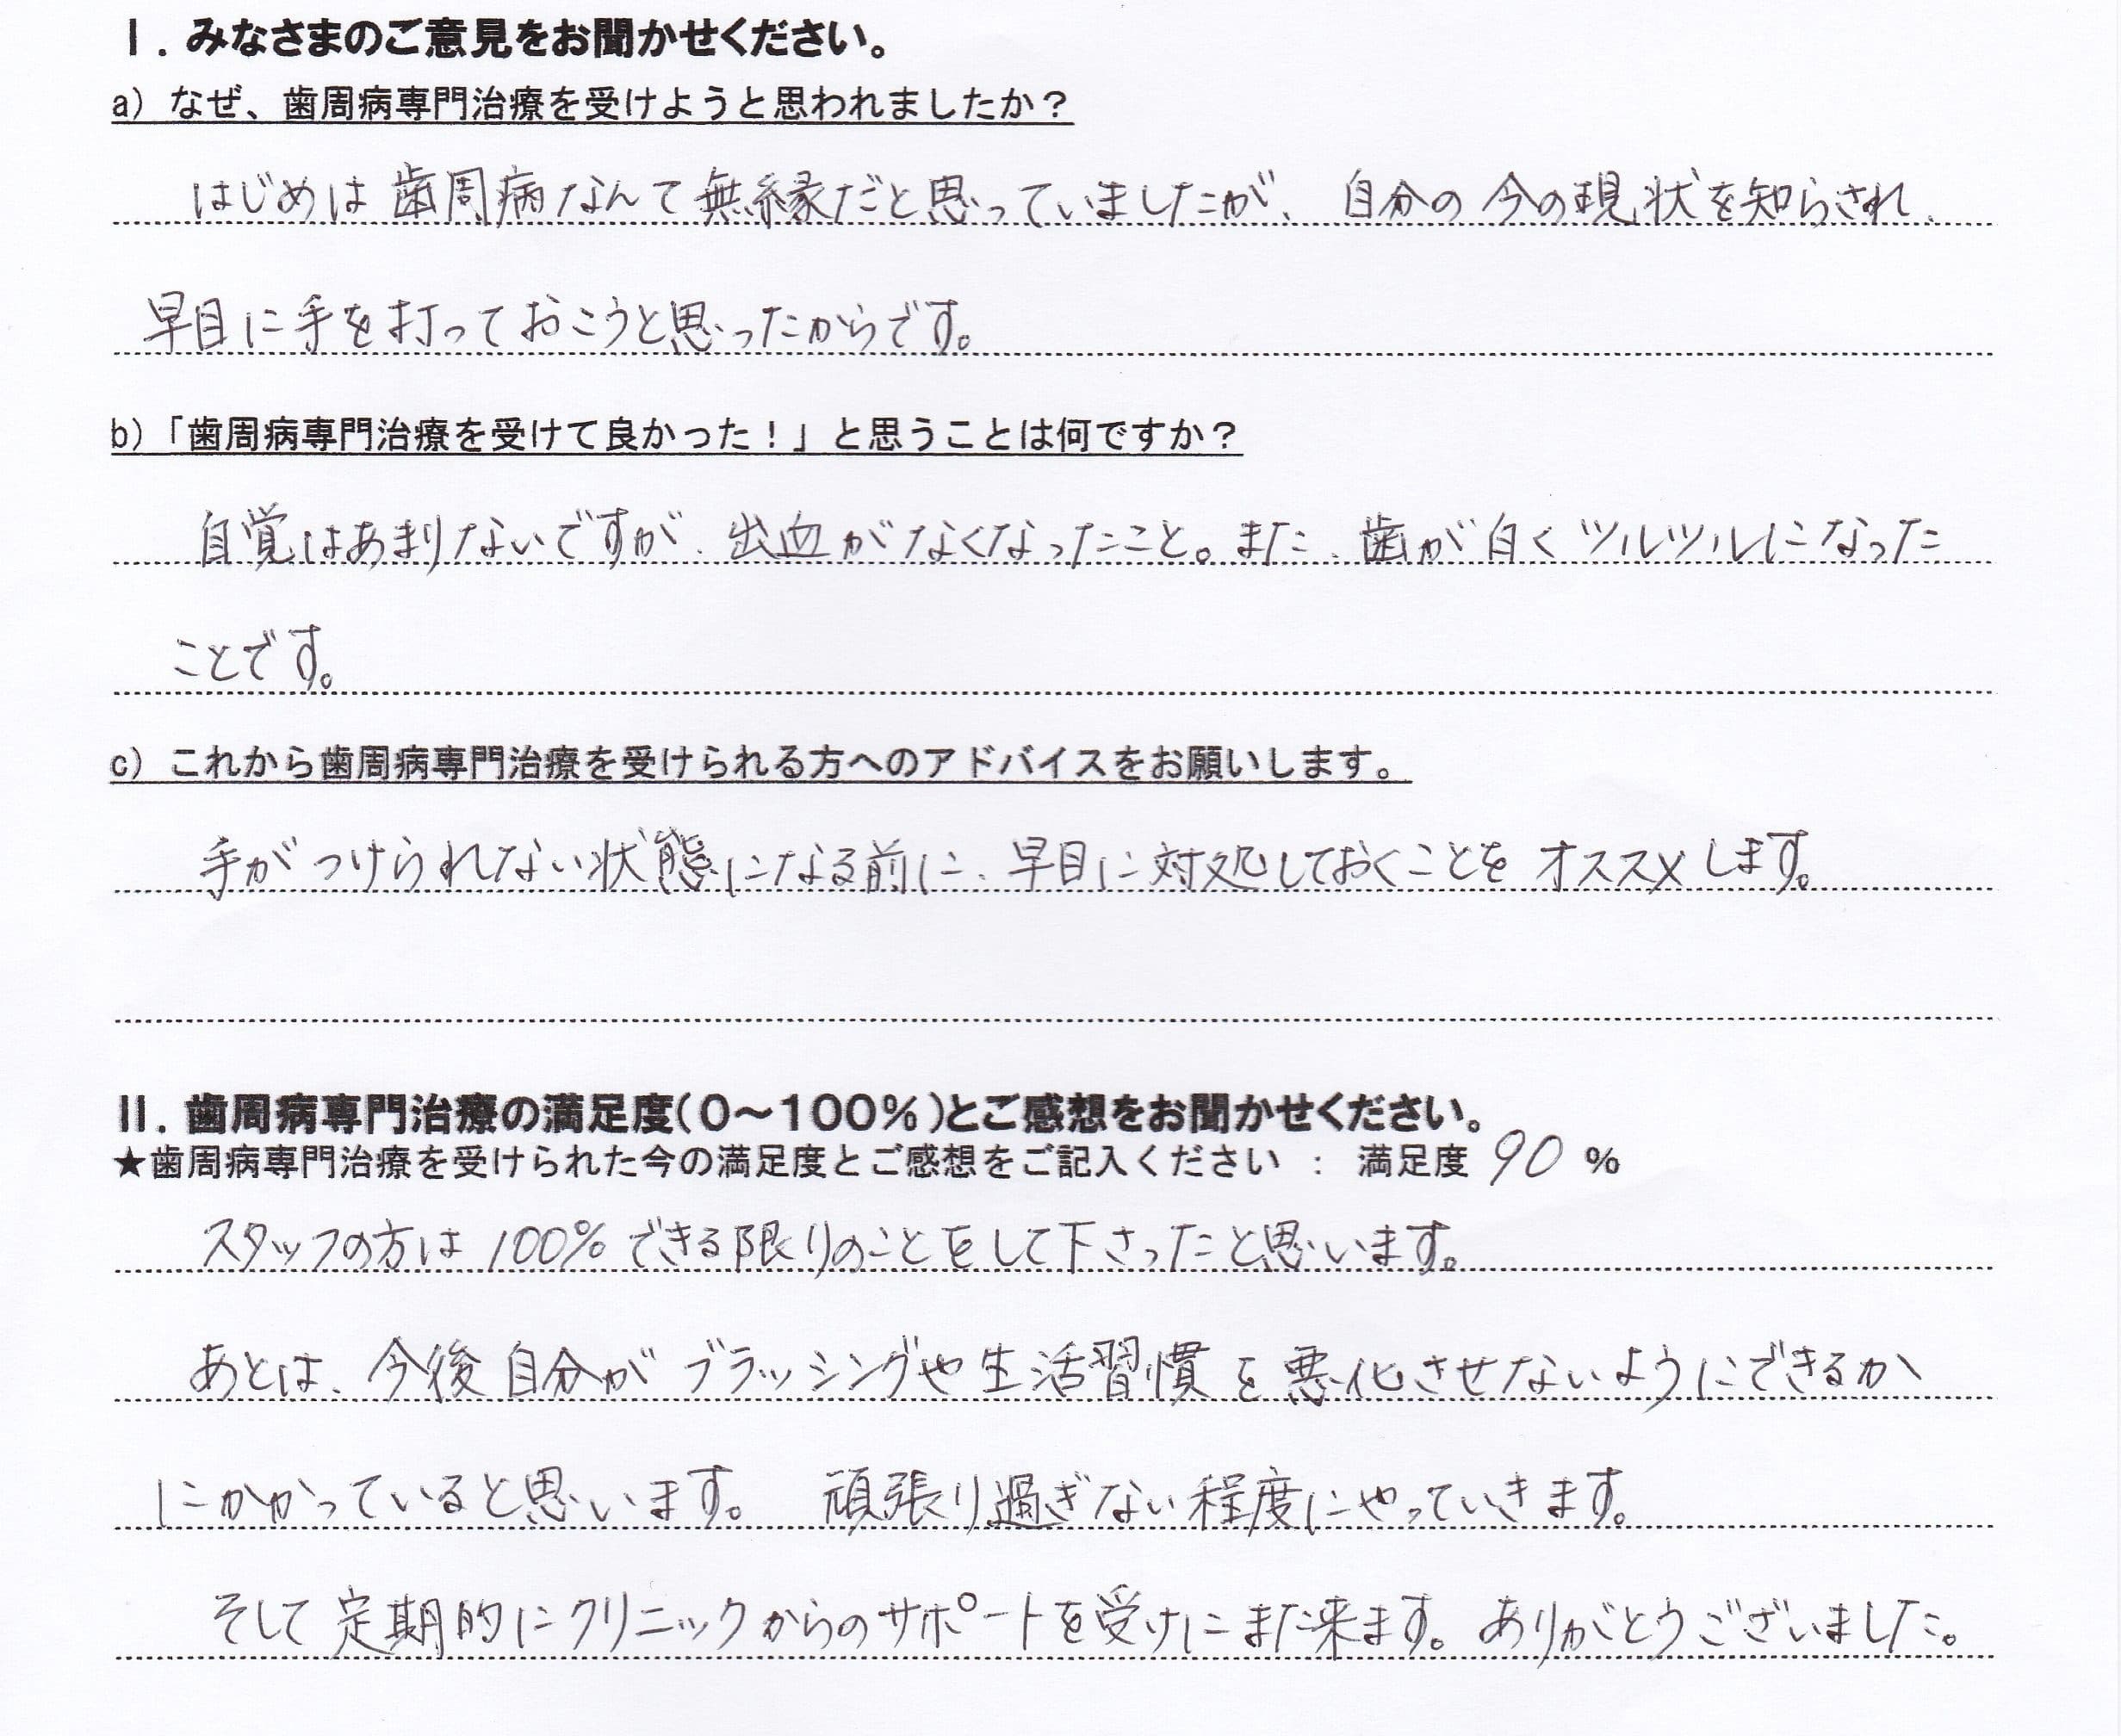 I. みなさまのご意見をお聞かせください。
a) なぜ、歯周病専門治療を受けようと思われましたか？
はじめは歯周病なんて無縁だと思っていましたが、自分の今の現状を知らされ、
早目に手を打っておこうと思ったからです。
b)「歯周病専門治療を受けて良かった！」と思うことは何ですか？
自覚はあまりないですが、出血がなくなったこと。また、歯が白くツルツルになった
ことです。
c) これから歯周病専門治療を受けられる方へのアドバイスをお願いします。
手がつけられない状態になる前に、早目に対処しておくことをオススメします。
II. 歯周病専門治療の満足度(0～100%)とご感想をお聞かせください。
★歯周病専門治療を受けられた今の満足度とご感想をご記入ください ： 満足度 90 %
スタッフの方は100%できる限りのことをして下さったと思います。
あとは、今後自分がブラッシングや生活習慣を悪化させないようにできるか
にかかっていると思います。 頑張り過ぎない程度にやっていきます。
そして定期的にクリニックからのサポートを受けにまた来ます。ありがとうございました。